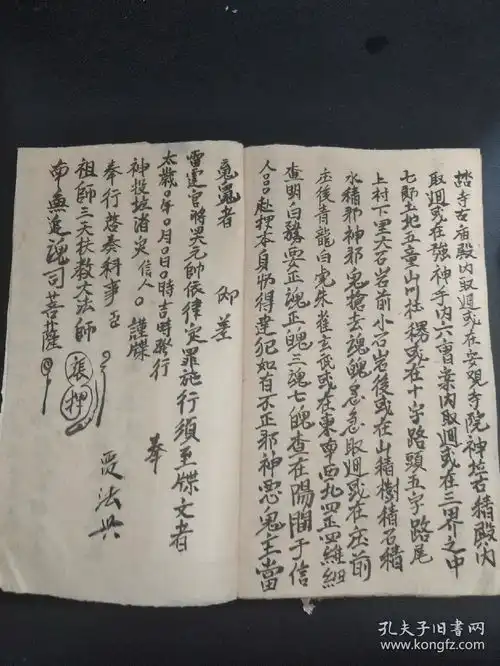 踏寺古庙殿内取迴或在安观寺院神坛古精殿内
取迴或在強神手内六曹案内取迴或在三界之中
七郎土地五童山川社 或在十字路頭五字路尾
上村下里大石岩前小石岩後或在山精樹精石精
水精邪神邪鬼搶去魂魄急急取迴或在庄前
庄後青龍白虎朱雀玄武或在東南西北四正四維細
查明白務要正魂正魄三魂七魄查在陽間于信
人〇〇赴押本身仍得違犯如有不正邪神惡鬼主當
魂魄者 卸差
雷霆官將吳元帥依律定罪施行須至牒文者
太歲年〇月〇日〇時吉時發行 奉
神投坡消災信人〇 謹牒
奉行啓奏科事臣
祖師三天扶教大法師
南無追魂司菩薩
表押
受法典
孔夫子旧书网
www.kongfz.com